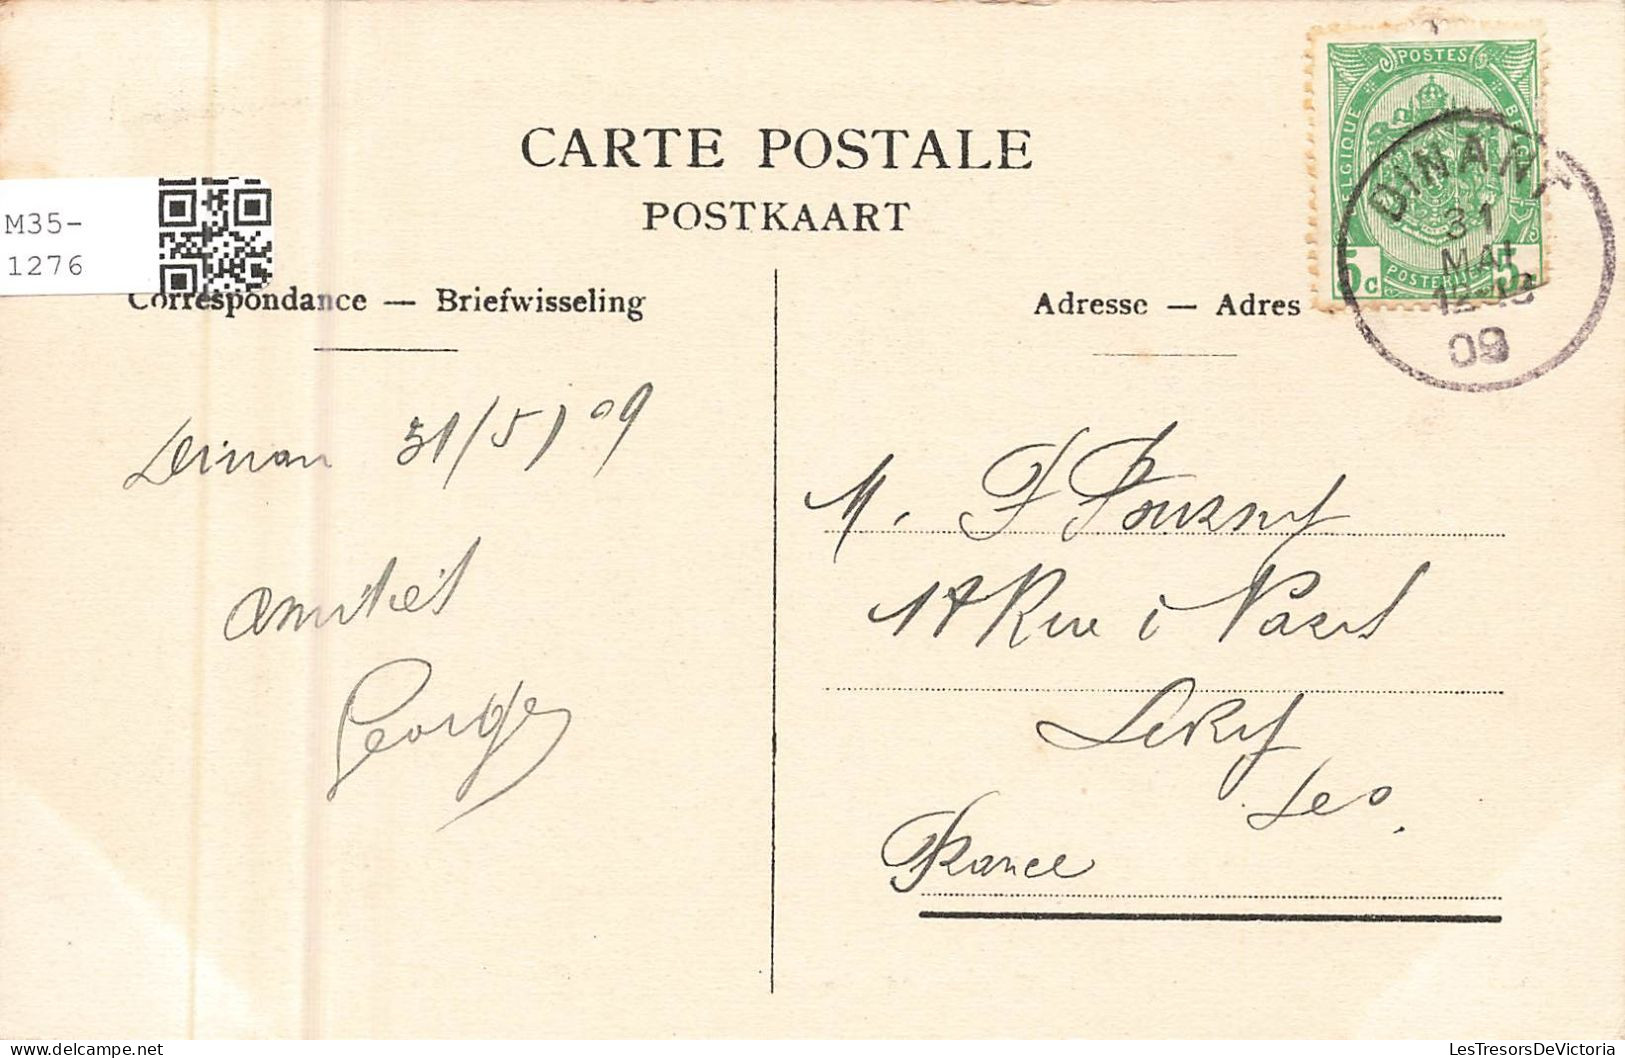 CARTE POSTALE
POSTKAART
M35-
1276
Correspondance — Briefwisseling
Adresse — Adres
POSTES
BELGIQUE
BELGIË
5c
POSTERIJEN
5c
DINANT
31
MAI
12-13
09
Dinan 31/5/09
amitiés
Georges
M. F
17 Rue
France
LesTresorsDeVictoria